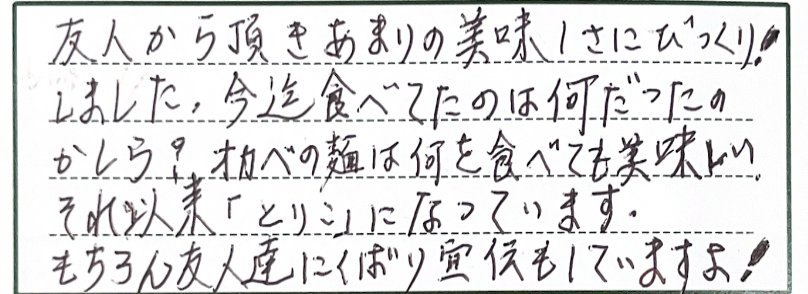 友人から頂きあまりの美味しさにびっくり!
しました。今迄食べてたのは何だったの
かしら?オカベの麺は何を食べても美味しい、
それ以来「とりこ」になっています。
もちろん友人達にくばり宣伝もしていますよ!